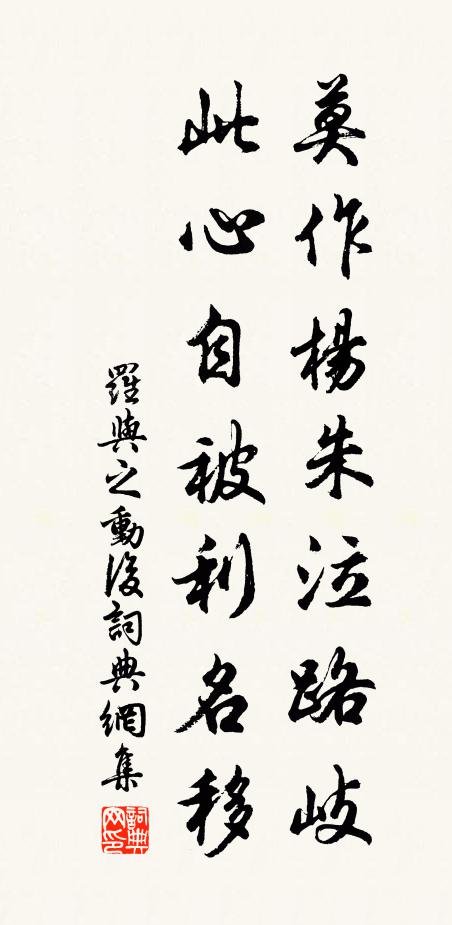 莫作楊朱泣路岐
此心自被利名移
羅與之動後詞典網集
詞典網印